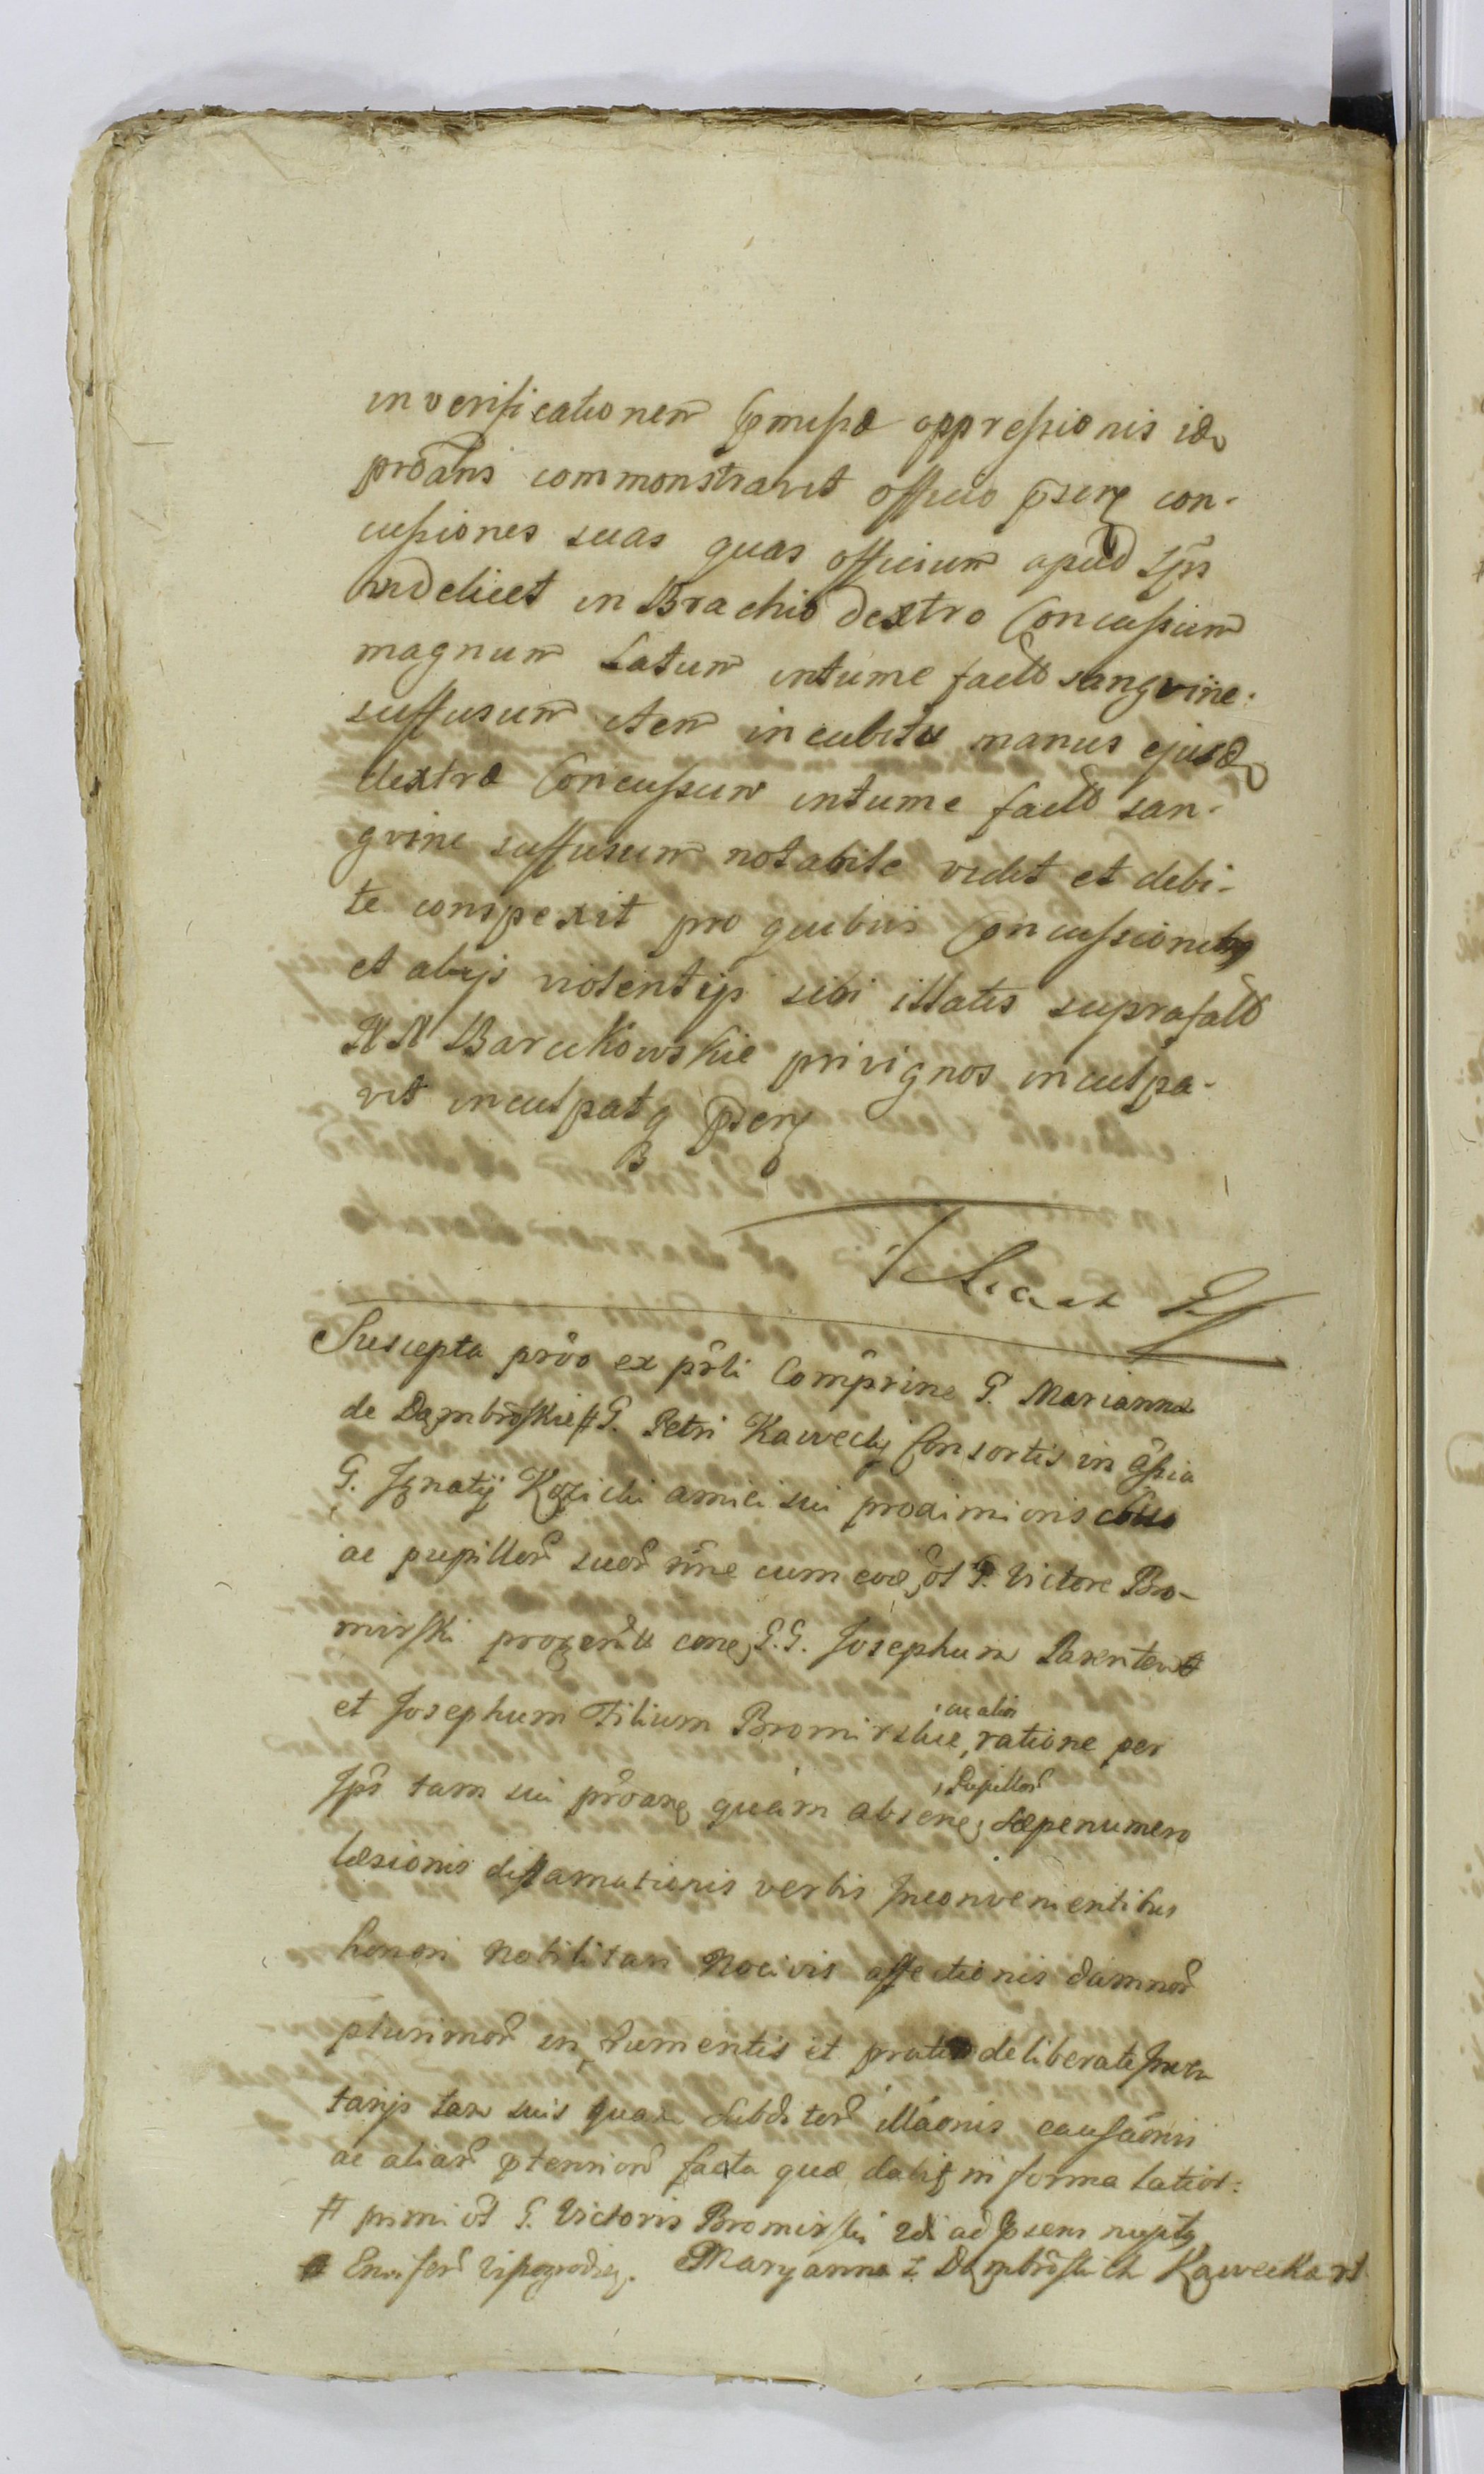 in verificationem pmissæ oppressionis ide
protans commonstravit officio pser con-
cussiones suas quas officium apud Ips
videlicet in Brachio dextro Concussum
magnum Latum intume factū sangvine.
suffusum item in cubitu manus ejusde
dextræ Concussum intume factū san-
gvine suffusum notabile vidit et debi-
te conspexit pro quibus Concussionibq
et alijs violentijs sibi illatis supra
NN Barcikowskie privignos inculpa-
vit inculpatq pser
Suscepta prōo ex prli Comprine G. Marianna
de Dąmbrōskie # G. Petri Kawecki Consortis in
G. Ignatij Kozicki amici sui proximioris
ac pupillor suor nne cum eod, ōt G. Victore Bro-
mirski cone G.G. Josephum Parentem
et Josephum Filium Bromirskie, ac alios ratione per
Ips tam sui prōane quam absene, Pupillor sæpenumero
læsionis diffamationis verbis Inconvenientibus
honori Nobilitari Nocivis affectionis damnor
plurimor in frumentis et pratis deliberate
tarijs tam suis quam subditor illāonis causāonis
ac aliar ptensionū facta quæ dabit in forma latiori:
# primi ōt G. Victoris Bromirski 2di ad psens nupta
Maryanna z Dąmbroskich Kawecka